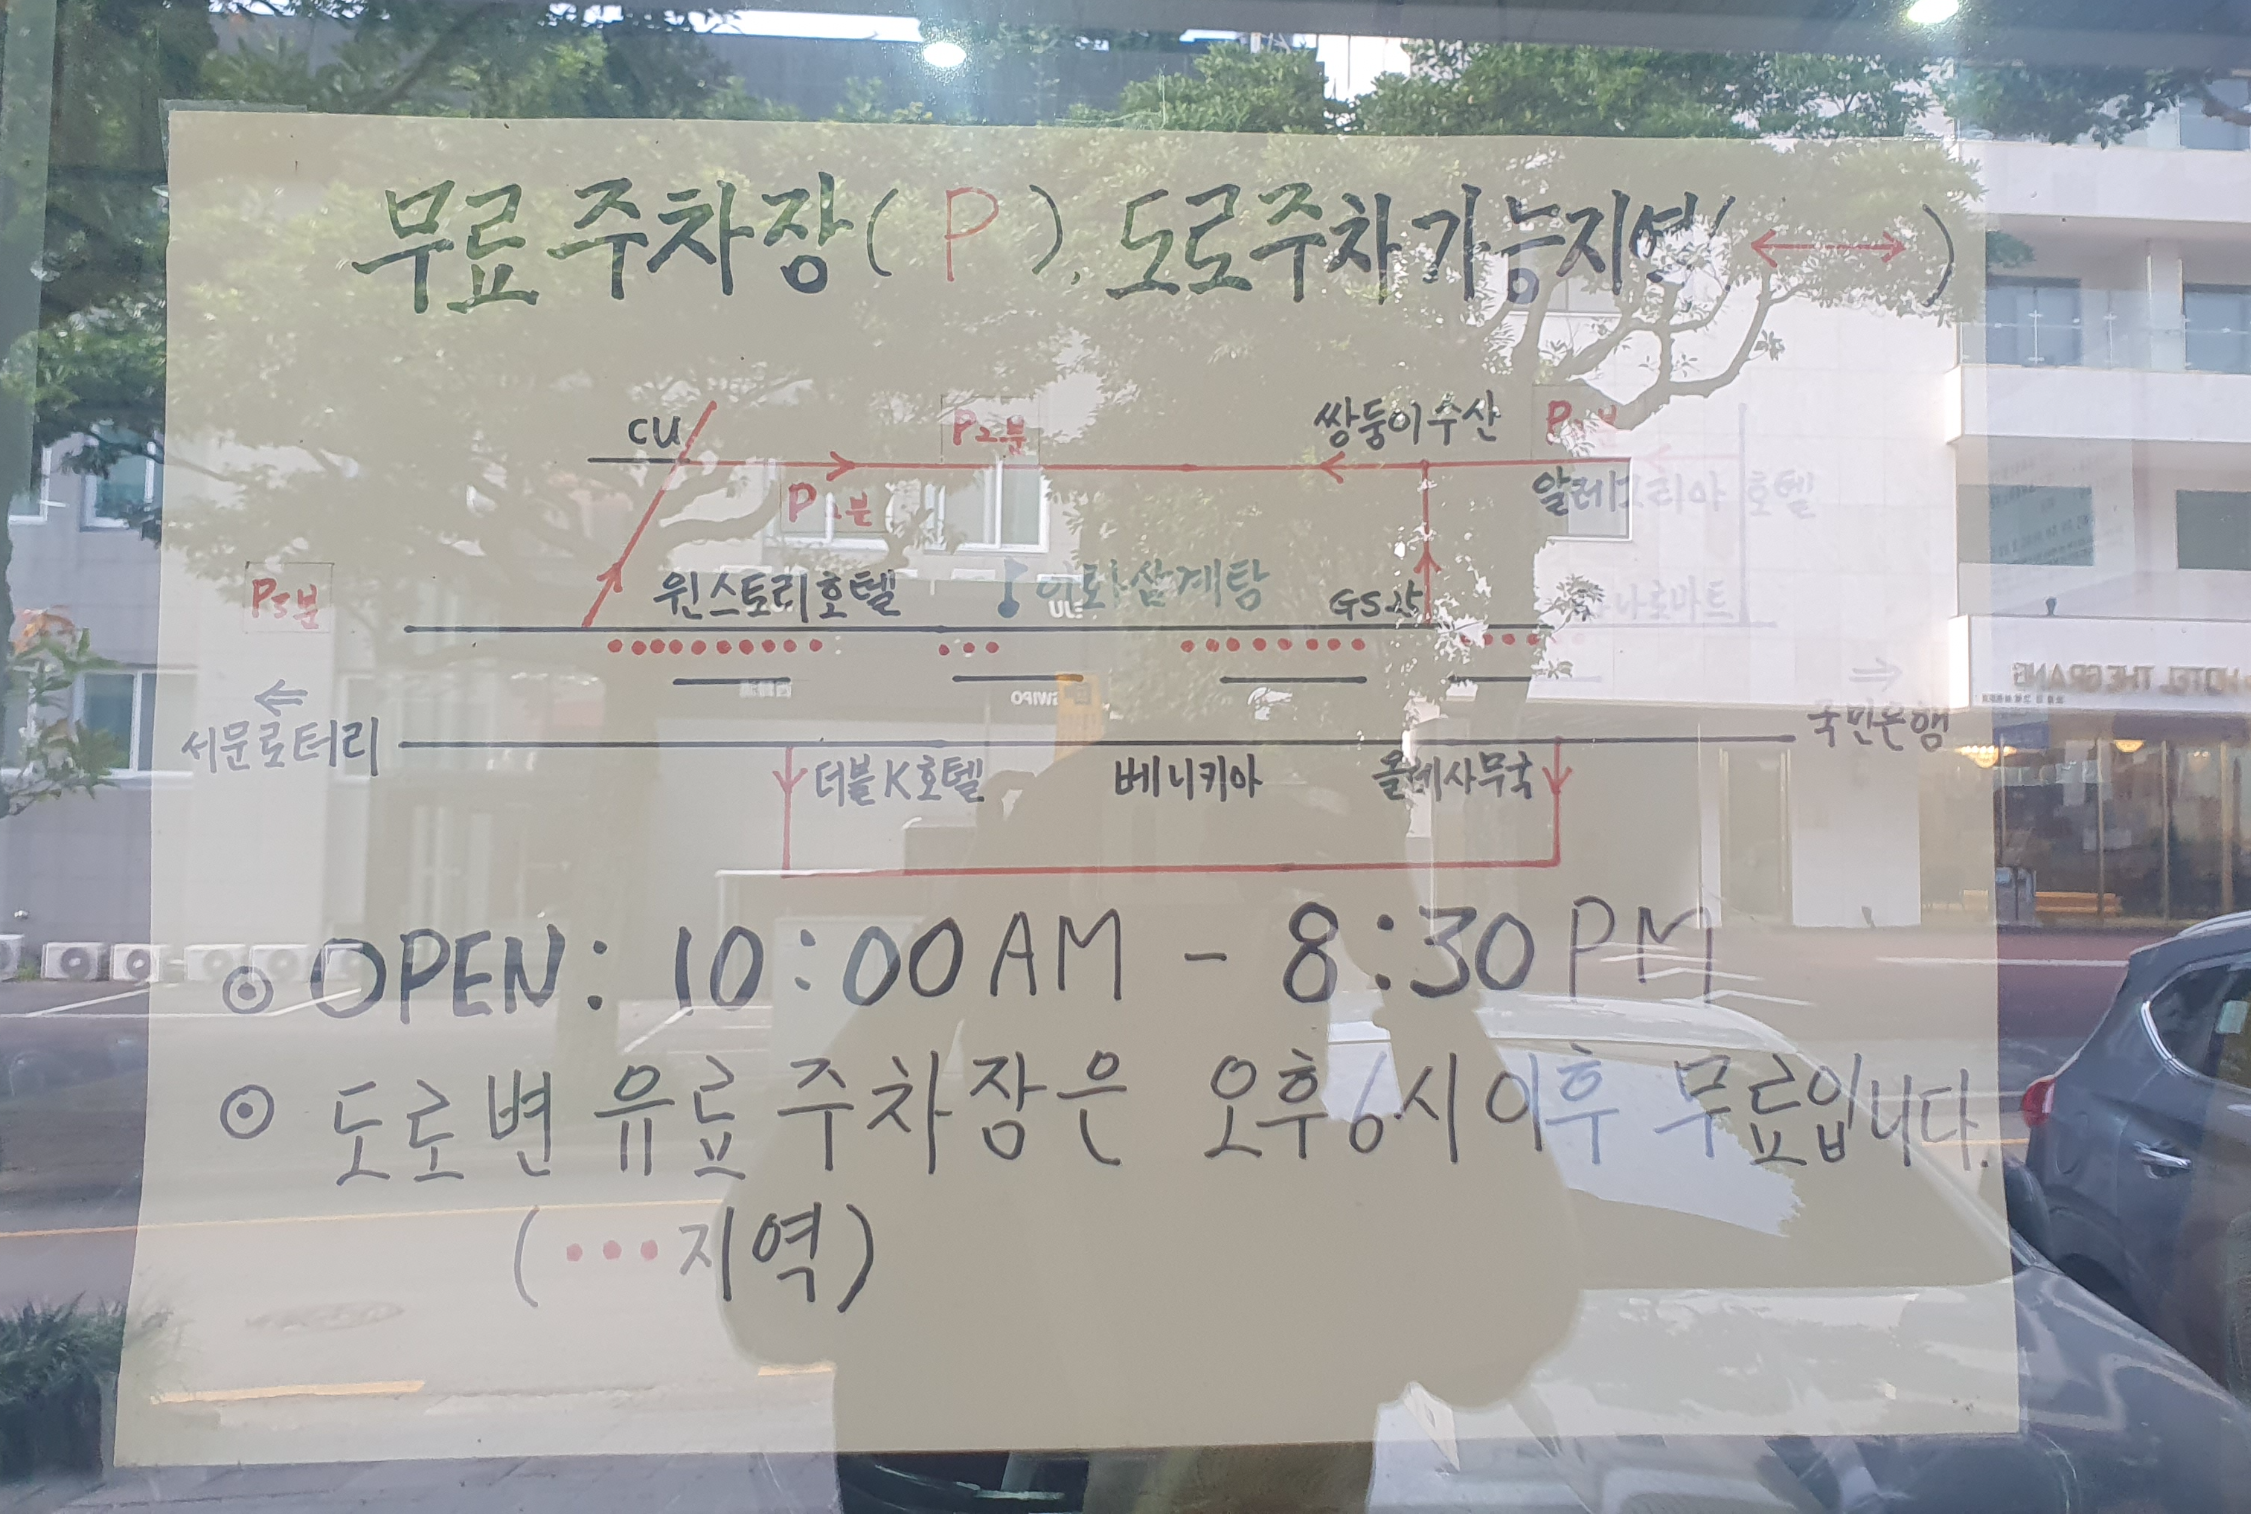 무료 주차장( P ), 도로주차가능지역( ↔ )
CU
P2분
쌍둥이수산
알레그리아 호텔
P5분
윈스토리호텔
이화삼계탕
GS25
서문로터리
국민은행
더블K호텔
베니키아
올레사무국
⊙ OPEN: 10:00 AM - 8:30 PM
⊙ 도로변 유료 주차장은 오후6시 이후 무료입니다.
(•••지역)
HOTEL THE GRANG